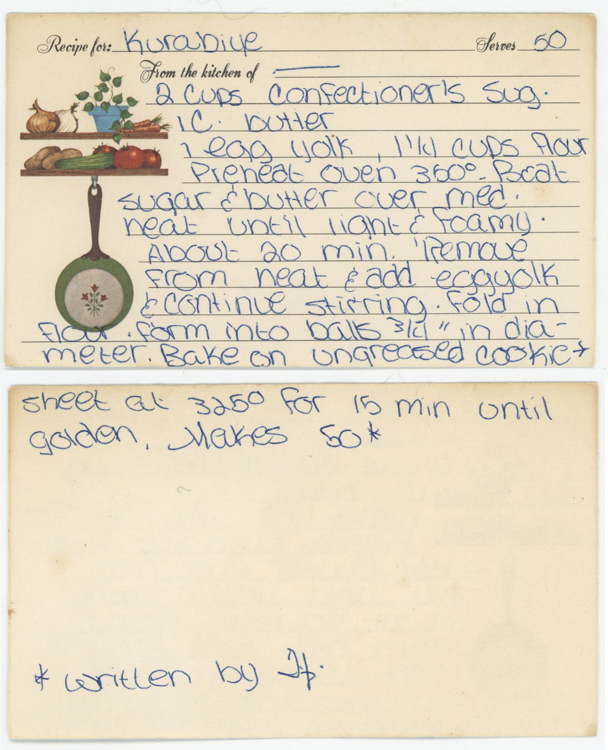 Recipe for: Kurabiye Serves 50
From the kitchen of —
2 Cups Confectioner's Sug.
1 C. butter
1 egg yolk, 1 1/4 cups flour
Preheat oven 350°. Beat
sugar & butter over med.
heat until light & foamy.
About 20 min. Remove
from heat & add eggyolk
& continue stirring. Fold in
flour. Form into balls 3/4" in dia-
meter. Bake on ungreased cookie→
sheet at 325° for 15 min until
golden. Makes 50*
* written by